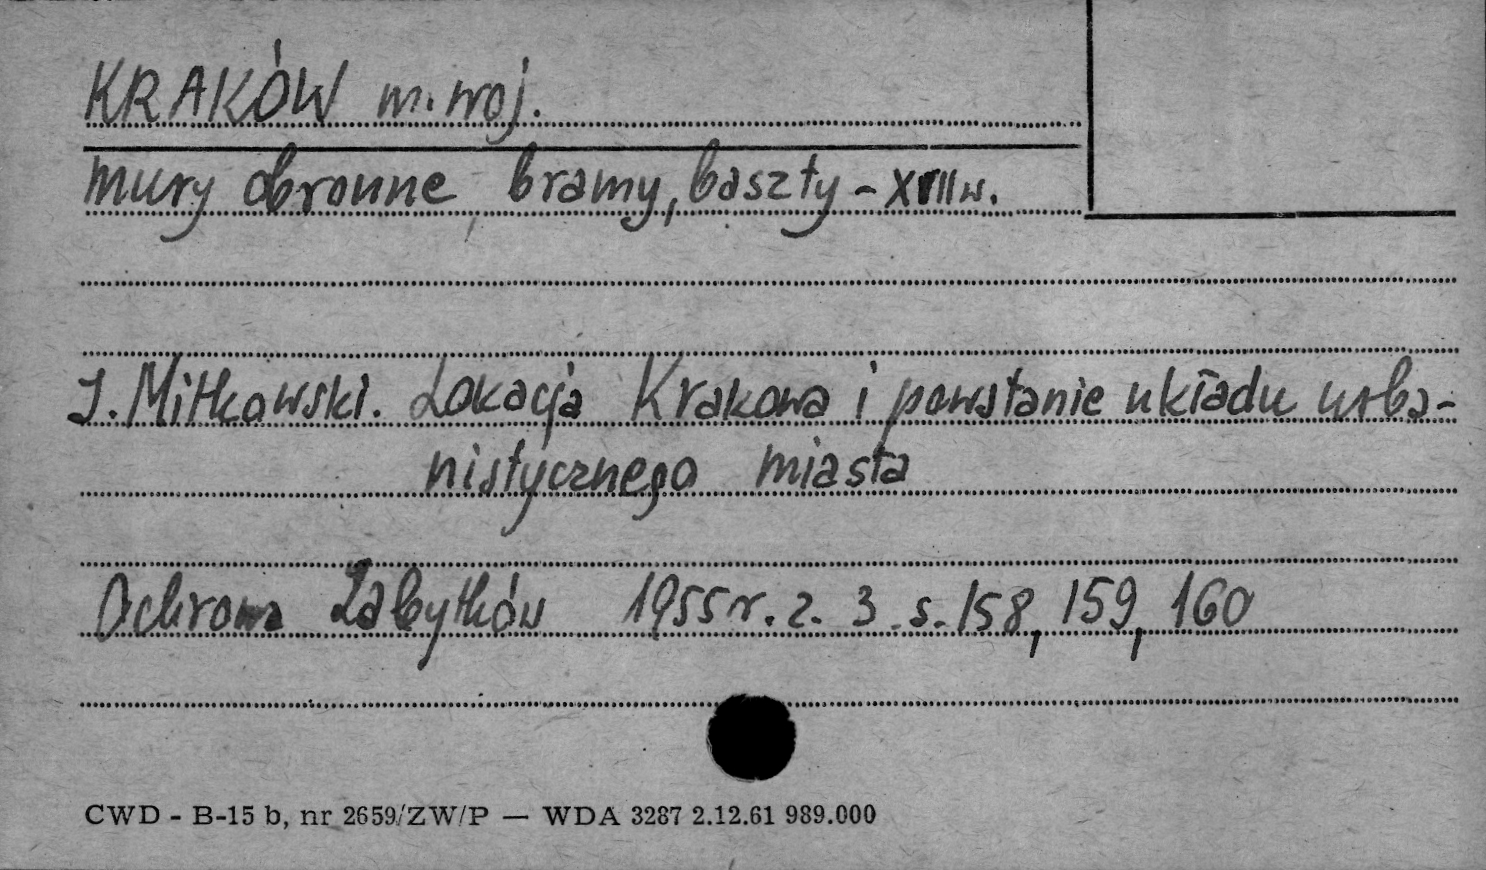 KRAKÓW m. woj.
mury obronne, bramy, baszty - XVIII w.
J. Mitkowski. Lokacja Krakowa i powstanie układu urba-
nistycznego miasta
Ochrona Zabytków 1955 r. z. 3. s. 158, 159, 160
CWD - B-15 b, nr 2659/ZW/P — WDA 3287 2.12.61 989.000